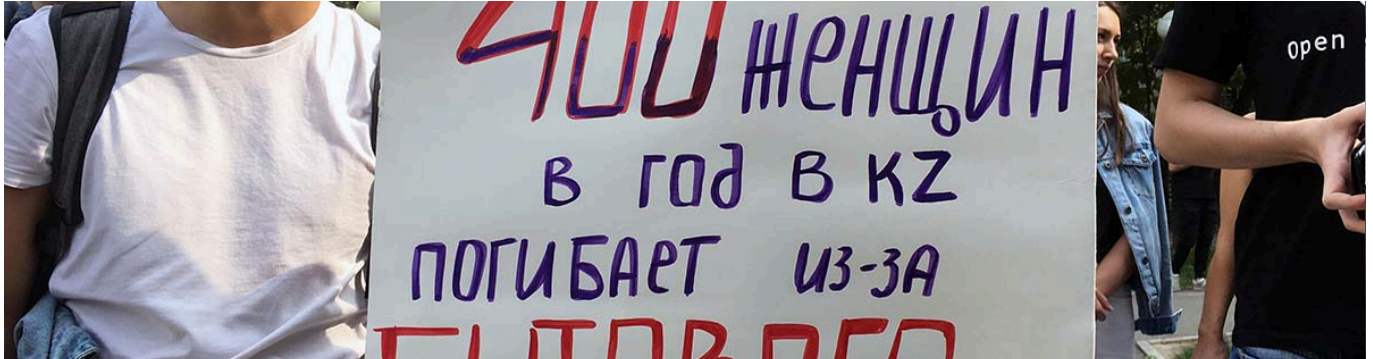 400 женщин
в год в KZ
погибает из-за
бытового
open